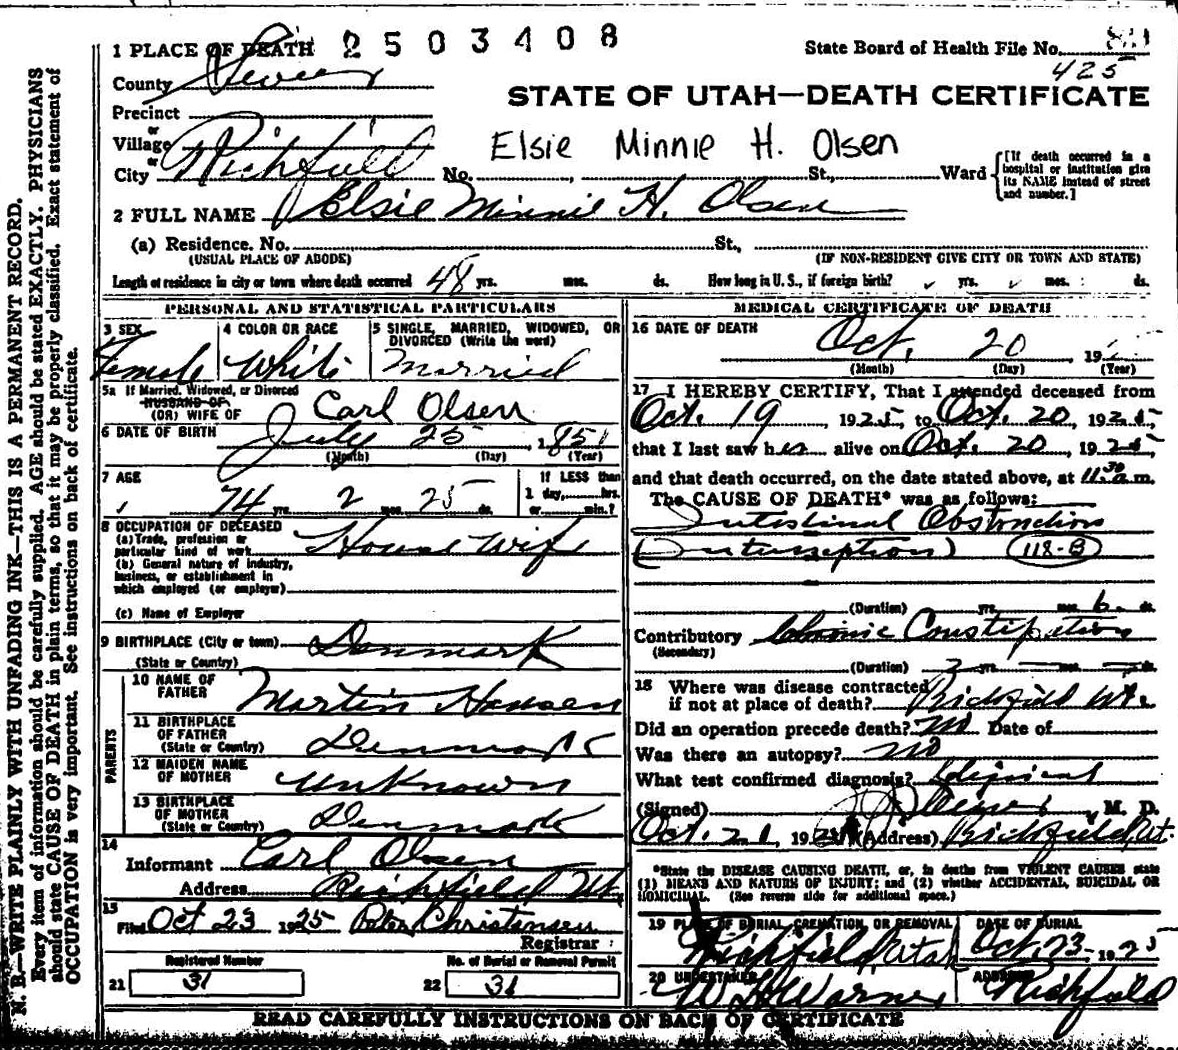 1 PLACE OF DEATH 2503408
State Board of Health File No.
425
County Sevier
STATE OF UTAH—DEATH CERTIFICATE
Precinct
or
Village
or
City Richfield No. St., Ward
Elsie Minnie H. Olsen
[If death occurred in a hospital or institution give its NAME instead of street and number.]
2 FULL NAME Elsie Minnie H. Olsen
(a) Residence. No. St.,
(USUAL PLACE OF ABODE) (IF NON-RESIDENT GIVE CITY OR TOWN AND STATE)
Length of residence in city or town where death occurred 48 yrs. mos. ds. How long in U. S., if foreign birth? yrs. mos. ds.
PERSONAL AND STATISTICAL PARTICULARS
3 SEX Female
4 COLOR OR RACE White
5 SINGLE, MARRIED, WIDOWED, OR DIVORCED (Write the word) Married
5a If Married, Widowed, or Divorced
HUSBAND OF
(OR) WIFE OF Carl Olsen
6 DATE OF BIRTH July 25 1851
(Month) (Day) (Year)
7 AGE 74 yrs. 2 mos. 25 ds.
If LESS than 1 day, hrs. or min.?
8 OCCUPATION OF DECEASED
(a) Trade, profession or particular kind of work House Wife
(b) General nature of industry, business, or establishment in which employed (or employer)
(c) Name of Employer
9 BIRTHPLACE (City or town) Denmark
(State or Country)
PARENTS
10 NAME OF FATHER Martin Hansen
11 BIRTHPLACE OF FATHER (State or Country) Denmark
12 MAIDEN NAME OF MOTHER Unknown
13 BIRTHPLACE OF MOTHER (State or Country) Denmark
14 Informant Carl Olsen
Address Richfield Ut.
15 Filed Oct 23 1925 Peter Christensen
Registrar
21 Registered Number 31
22 No. of Burial or Removal Permit 31
MEDICAL CERTIFICATE OF DEATH
16 DATE OF DEATH Oct. 20 192
(Month) (Day) (Year)
17 I HEREBY CERTIFY, That I attended deceased from
Oct. 19, 1925, to Oct. 20, 1925,
that I last saw her alive on Oct. 20, 1925
and that death occurred, on the date stated above, at 11:30 a.m.
The CAUSE OF DEATH* was as follows:
Intestinal Obstruction
(Intussception) 118-B
(Duration) yrs. mos. 6 ds.
Contributory Chronic Constipation
(Secondary)
(Duration) 3 yrs. mos. ds.
18 Where was disease contracted
if not at place of death? Richfield Ut.
Did an operation precede death? No Date of
Was there an autopsy? no
What test confirmed diagnosis? Clinical
(Signed) M. D.
Oct. 21, 192 (Address) Richfield, Ut.
*State the DISEASE CAUSING DEATH, or, in deaths from VIOLENT CAUSES state
(1) MEANS AND NATURE OF INJURY; and (2) whether ACCIDENTAL, SUICIDAL OR
HOMICIDAL. (See reverse side for additional space.)
19 PLACE OF BURIAL, CREMATION, OR REMOVAL Richfield Utah
DATE OF BURIAL Oct. 23, 1925
20 UNDERTAKER Warner
ADDRESS Richfield
READ CAREFULLY INSTRUCTIONS ON BACK OF CERTIFICATE
N. B.—WRITE PLAINLY WITH UNFADING INK—THIS IS A PERMANENT RECORD.
Every item of information should be carefully supplied. AGE should be stated EXACTLY. PHYSICIANS
should state CAUSE OF DEATH in plain terms, so that it may be properly classified. Exact statement of
OCCUPATION is very important. See instructions on back of certificate.